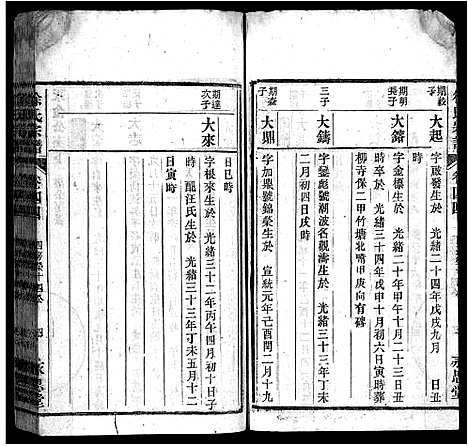 期啟子
大起
字啟發生於 光緒二十四年戊戌九月
丑時
期明長子
大鎔
字金榛生於 光緒二十年甲午十月二十三日丑
時 光緒三十四年戊申十月初六日寅時葬
柳寺保二甲竹塘北嘴甲庚向有碑
三子
大鑄
字 號潮波名觀濤生於 光緒三十三年丁未
二月初四日戌時
期 子
大鼎
字加鼎號錦榮生於 宣統元年己酉閏二月十九
日巳時
期達次子
大來
字根來生於 光緒三十二年丙午四月初十日子
時 龍汪氏生於 光緒三十三年丁未五月十二
日寅時
徐氏宗譜
卷四四
四
永思堂